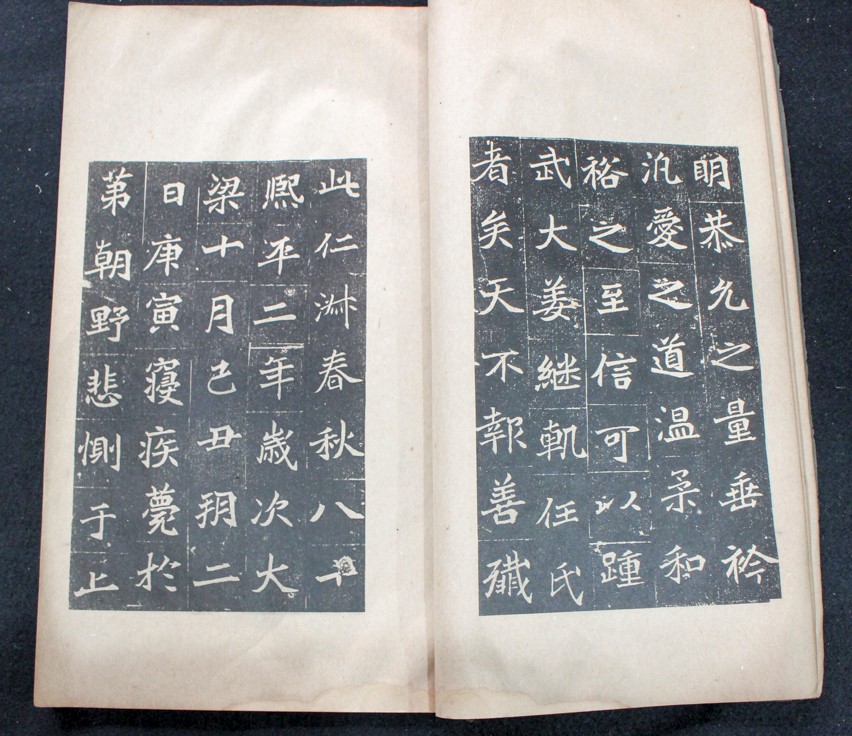 明恭允之量垂衿
汎愛之道温柔和
裕之至信可以踵
武大姜継軌任氏
者矣天不報善殲
此仁淑春秋八十
熙平二年歲次大
梁十月己丑朔二
日庚寅寢疾薨於
第朝野悲惻于上